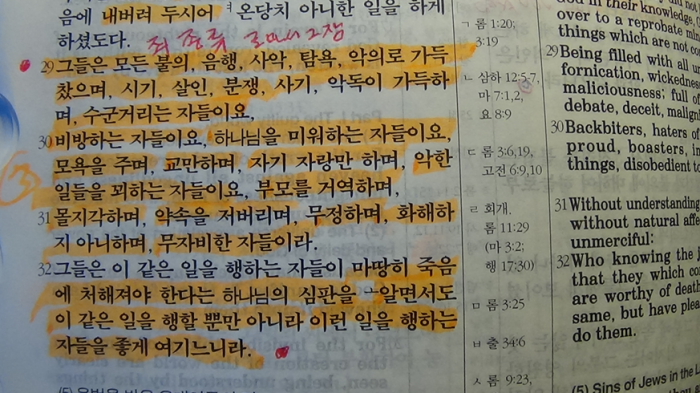 음에 내버려 두시어 ᄋ온당치 아니한 일을 하게
하셨도다.
죄 종류 로마서 1장
29 그들은 모든 불의, 음행, 사악, 탐욕, 악의로 가득
찼으며, 시기, 살인, 분쟁, 사기, 악독이 가득하
며, 수군거리는 자들이요,
30 비방하는 자들이요, 하나님을 미워하는 자들이요,
모욕을 주며, 교만하며, 자기 자랑만 하며, 악한
일들을 꾀하는 자들이요, 부모를 거역하며,
31 몰지각하며, 약속을 저버리며, 무정하며, 화해하
지 아니하며, 무자비한 자들이라.
32 그들은 이 같은 일을 행하는 자들이 마땅히 죽음
에 처해져야 한다는 하나님의 심판을 ㄱ알면서도
이 같은 일을 행할 뿐만 아니라 이런 일을 행하는
자들을 좋게 여기느니라.
3
ㄱ 롬 1:20;
3:19
ㄴ 삼하 12:5,7,
마 7:1,2,
요 8:9
ㄷ 롬 3:6,19,
고전 6:9,10
ㄹ 회개.
롬 11:29
(마 3:2;
행 17:30)
ㅁ 롬 3:25
ㅂ 출 34:6
ㅅ 롬 9:23,
God in their knowledge,
over to a reprobate min
things which are not
29 Being filled with all u
fornication, wickednes
maliciousness; full of
debate, deceit, malign
30 Backbiters, haters of
proud, boasters, in
things, disobedient to
31 Without understanding
without natural affe
unmerciful:
32 Who knowing the j
that they which co
are worthy of death
same, but have plea
do them.
(5) Sins of Jews in the L